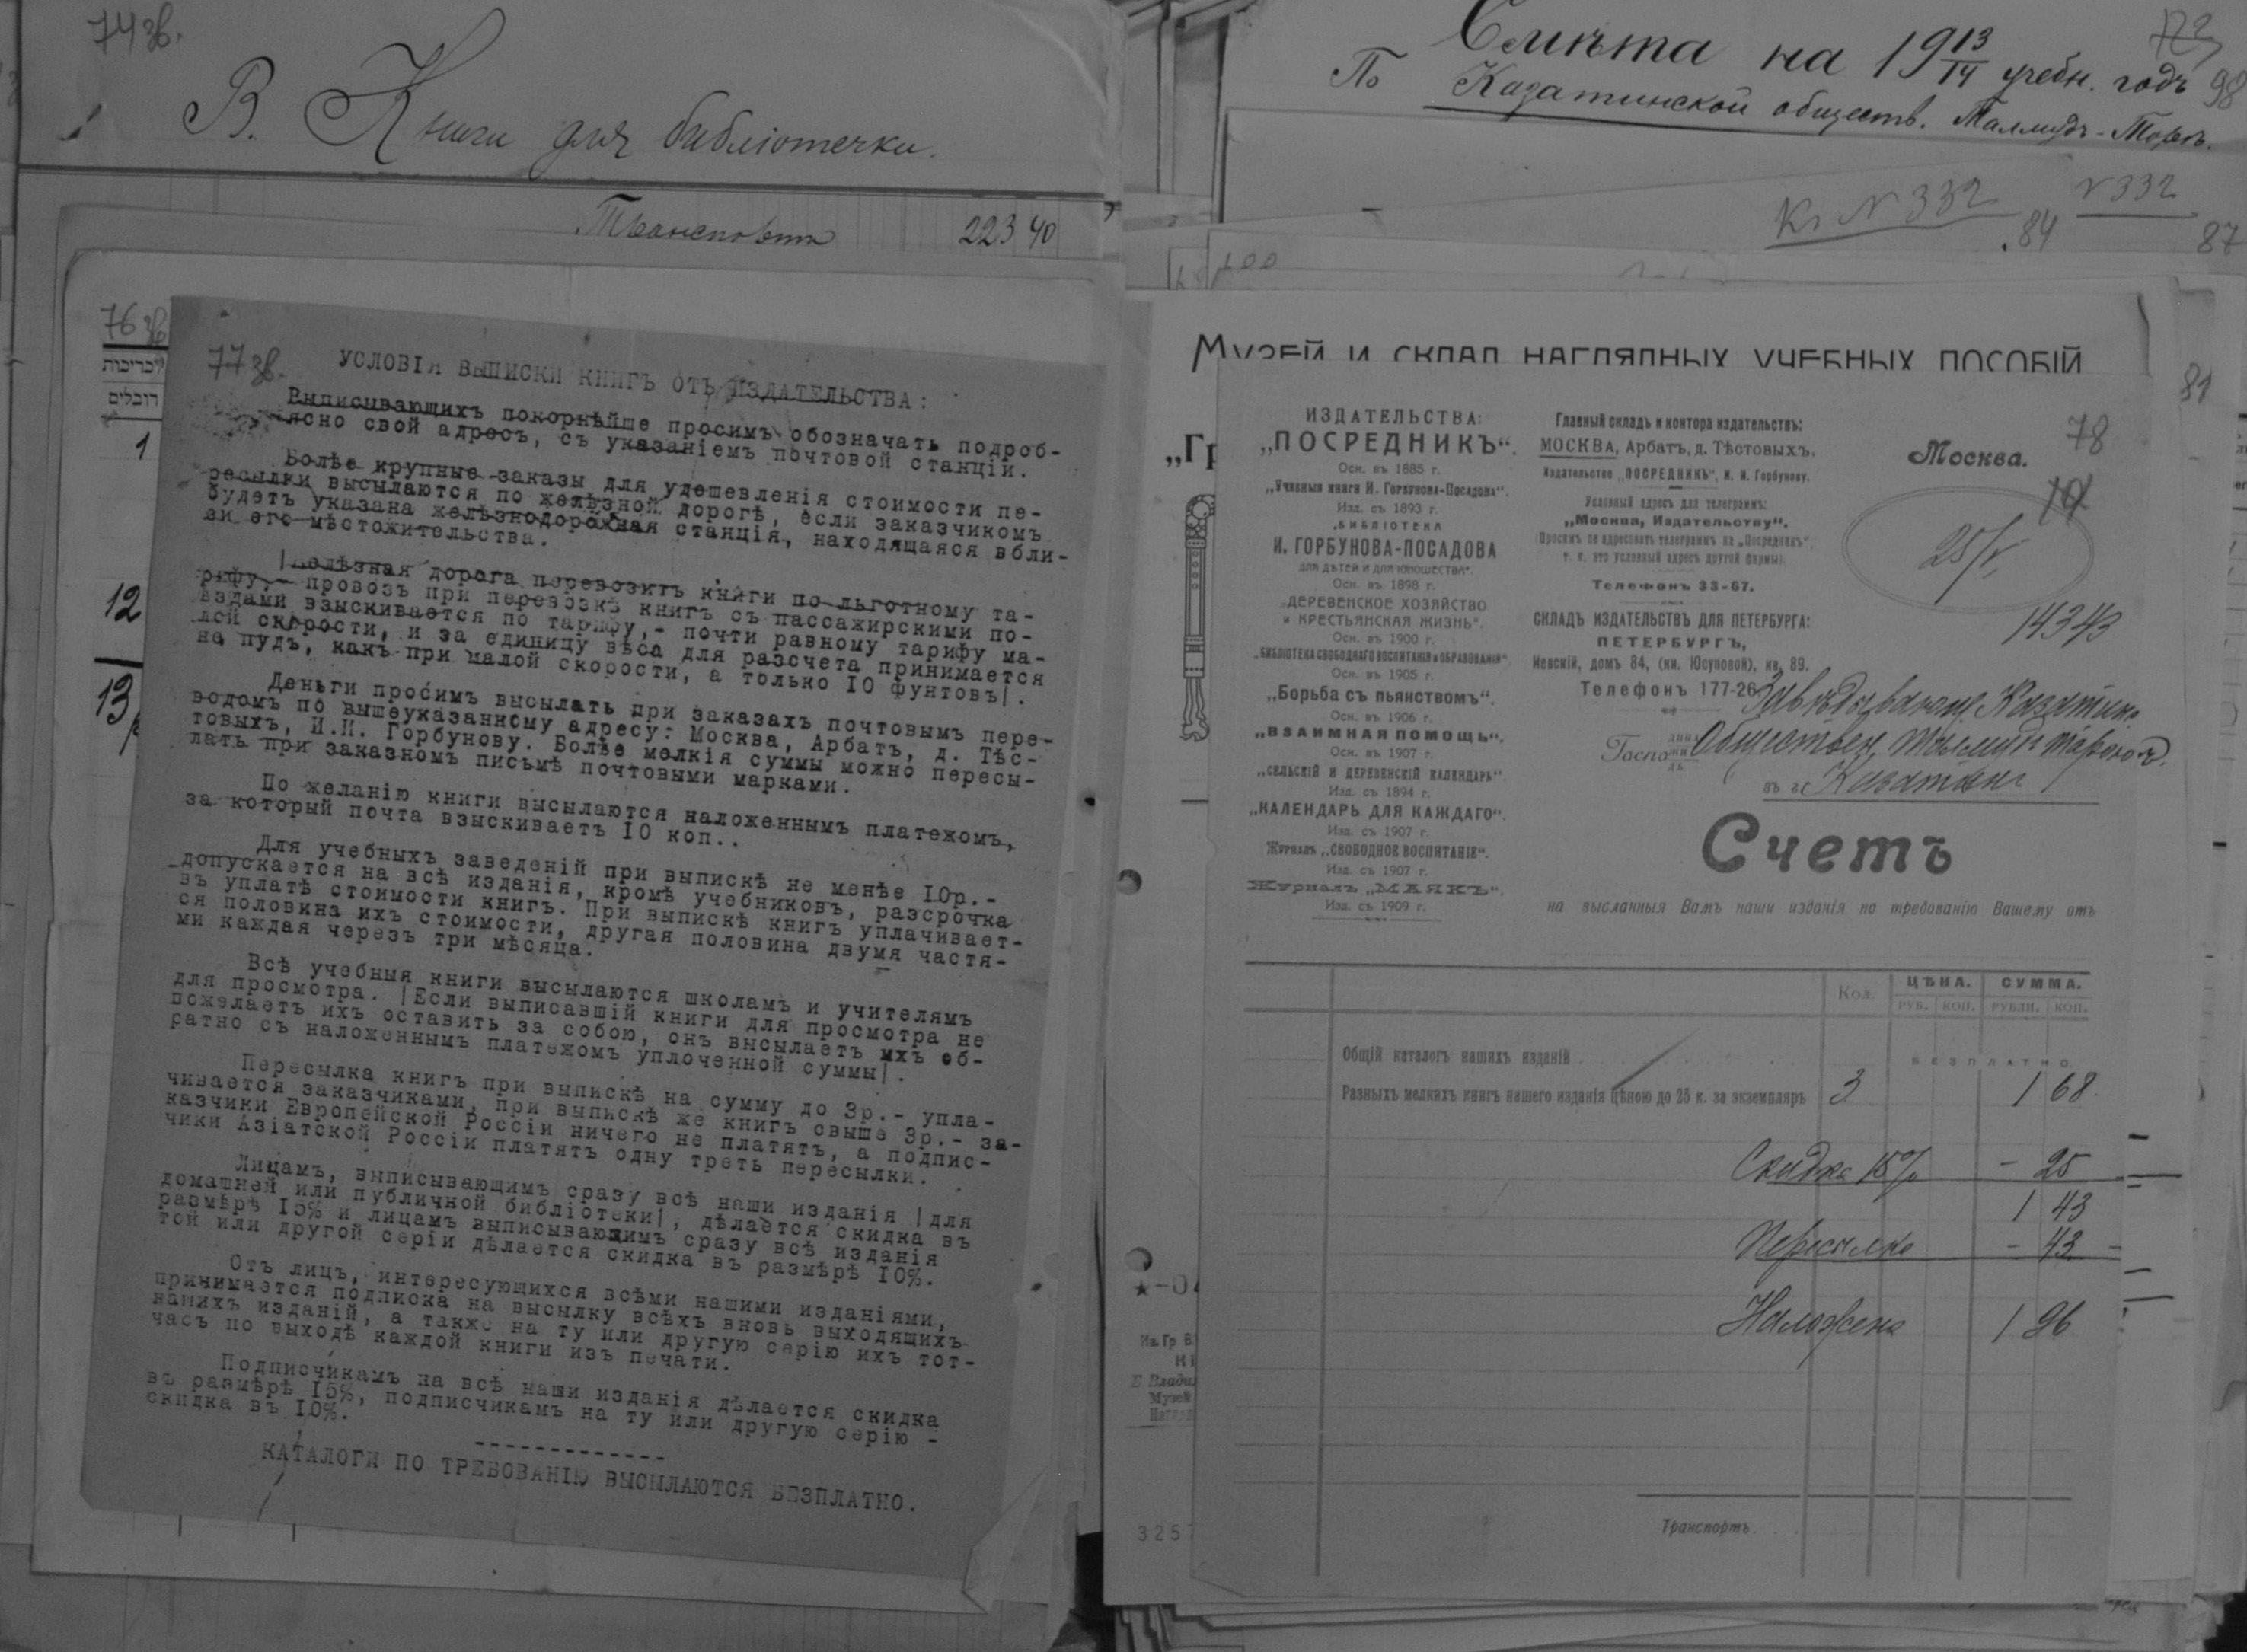 74 зв.
В. Книги для библіотечки.
Транспортъ 223 40
76 зв
דובלים
1
12
13
77 зв.
УСЛОВІЯ ВЫПИСКИ КНИГЪ ОТЪ ИЗДАТЕЛЬСТВА:
Выписывающихъ покорнѣйше просимъ обозначать подроб-
ясно свой адресъ, съ указаніемъ почтовой станціи.
Болѣе крупные заказы для удешевленія стоимости пе-
ресылки высылаются по желѣзной дорогѣ, если заказчикомъ
будетъ указана желѣзнодорожная станція, находящаяся вбли-
зи его мѣстожительства.
|Желѣзная дорога перевозитъ книги по льготному та-
рифу,- провозъ при перевозкѣ книгъ съ пассажирскими по-
ѣздами взыскивается по тарифу,- почти равному тарифу ма-
лой скорости, и за единицу вѣса для разсчета принимается
на пудъ, какъ при малой скорости, а только 10 фунтовъ|.
Деньги просимъ высылать при заказахъ почтовымъ пере-
водомъ по вышеуказанному адресу: Москва, Арбатъ, д. Тѣс-
товыхъ, И.И. Горбунову. Болѣе мелкія суммы можно пересы-
лать при заказномъ письмѣ почтовыми марками.
По желанію книги высылаются наложеннымъ платежомъ,
за который почта взыскиваетъ 10 коп..
Для учебныхъ заведеній при выпискѣ не менѣе 10р.-
допускается на всѣ изданія, кромѣ учебниковъ, разсрочка
въ уплатѣ стоимости книгъ. При выпискѣ книгъ уплачивает-
ся половина ихъ стоимости, другая половина двумя частя-
ми каждая черезъ три мѣсяца.
Всѣ учебныя книги высылаются школамъ и учителямъ
для просмотра. |Если выписавшій книги для просмотра не
пожелаетъ ихъ оставить за собою, онъ высылаетъ ихъ об-
ратно съ наложеннымъ платежомъ уплоченной суммы|.
Пересылка книгъ при выпискѣ на сумму до 3р.- упла-
чивается заказчиками, при выпискѣ же книгъ свыше 3р.- за-
казчики Европейской Россіи ничего не платятъ, а подпис-
чики Азіатской Россіи платятъ одну треть пересылки.
Лицамъ, выписывающимъ сразу всѣ наши изданія |для
домашней или публичной библіотеки|, дѣлается скидка въ
размѣрѣ 15% и лицамъ выписывающимъ сразу всѣ изданія
той или другой серіи дѣлается скидка въ размѣрѣ 10%.
Отъ лицъ, интересующихся всѣми нашими изданіями,
принимается подписка на высылку всѣхъ вновь выходящихъ
нашихъ изданій, а также на ту или другую серію ихъ тот-
часъ по выходѣ каждой книги изъ печати.
Подписчикамъ на всѣ наши изданія дѣлается скидка
въ размѣрѣ 15%, подписчикамъ на ту или другую серію -
скидка въ 10%.
КАТАЛОГИ ПО ТРЕБОВАНІЮ ВЫСЫЛАЮТСЯ БЕЗПЛАТНО.
Смѣта на 19 13/14 учебн. годъ
98
По Казатинской обществ. Талмудъ-Торѣ.
Кт N 332 N 332
84 87
100
МУЗЕЙ И СКЛАД НАГЛЯДНЫХ УЧЕБНЫХ ПОСОБІЙ
81
78
„Гр
ИЗДАТЕЛЬСТВА:
„ПОСРЕДНИКЪ“.
Осн. въ 1885 г.
„Учебныя книги И. Горбунова-Посадова“.
Изд. съ 1893 г.
„БИБЛІОТЕКА
И. ГОРБУНОВА-ПОСАДОВА
ДЛЯ ДѢТЕЙ И ДЛЯ ЮНОШЕСТВА“.
Осн. въ 1898 г.
„ДЕРЕВЕНСКОЕ ХОЗЯЙСТВО
и КРЕСТЬЯНСКАЯ ЖИЗНЬ“.
Осн. въ 1900 г.
„БИБЛІОТЕКА СВОБОДНАГО ВОСПИТАНІЯ и ОБРАЗОВАНІЯ“.
Осн. въ 1905 г.
„Борьба съ пьянствомъ“.
Осн. въ 1906 г.
„ВЗАИМНАЯ ПОМОЩЬ“.
Осн. въ 1907 г.
„СЕЛЬСКІЙ И ДЕРЕВЕНСКІЙ КАЛЕНДАРЬ“.
Изд. съ 1894 г.
„КАЛЕНДАРЬ ДЛЯ КАЖДАГО“.
Изд. съ 1907 г.
Журналъ „СВОБОДНОЕ ВОСПИТАНІЕ“.
Изд. съ 1907 г.
Журналъ „МАЯКЪ“.
Изд. съ 1909 г.
Главный складъ и контора издательствъ:
МОСКВА, Арбатъ, д. Тѣстовыхъ.
Издательство „ПОСРЕДНИКЪ“, И. И. Горбунову.
Условный адресъ для телеграммъ:
„Москва, Издательству“.
(Просимъ не адресовать телеграммъ на „Посредникъ“,
т. к. это условный адресъ другой фирмы).
Телефонъ 33-67.
СКЛАДЪ ИЗДАТЕЛЬСТВЪ ДЛЯ ПЕТЕРБУРГА:
ПЕТЕРБУРГЪ,
Невскій, домъ 84, (кн. Юсуповой), кв. 89.
Телефонъ 177-26
Москва.
14343
Завѣдывающ. Казатинс
Госпо Обществен. Талмудъ торою
въ г. Казатинъ
Счетъ
на высланныя Вамъ наши изданія по требованію Вашему отъ
Кол. ЦѢНА. СУММА.
РУБ. КОП. РУБЛИ. КОП.
Общій каталогъ нашихъ изданій БЕЗПЛАТНО.
Разныхъ мелкихъ книгъ нашего изданія цѣною до 25 к. за экземпляръ 3 1 68
Скидка 15% – 25
1 43
Пересылка – 43 –
Наложено 1 86
Транспортъ
Музей
325